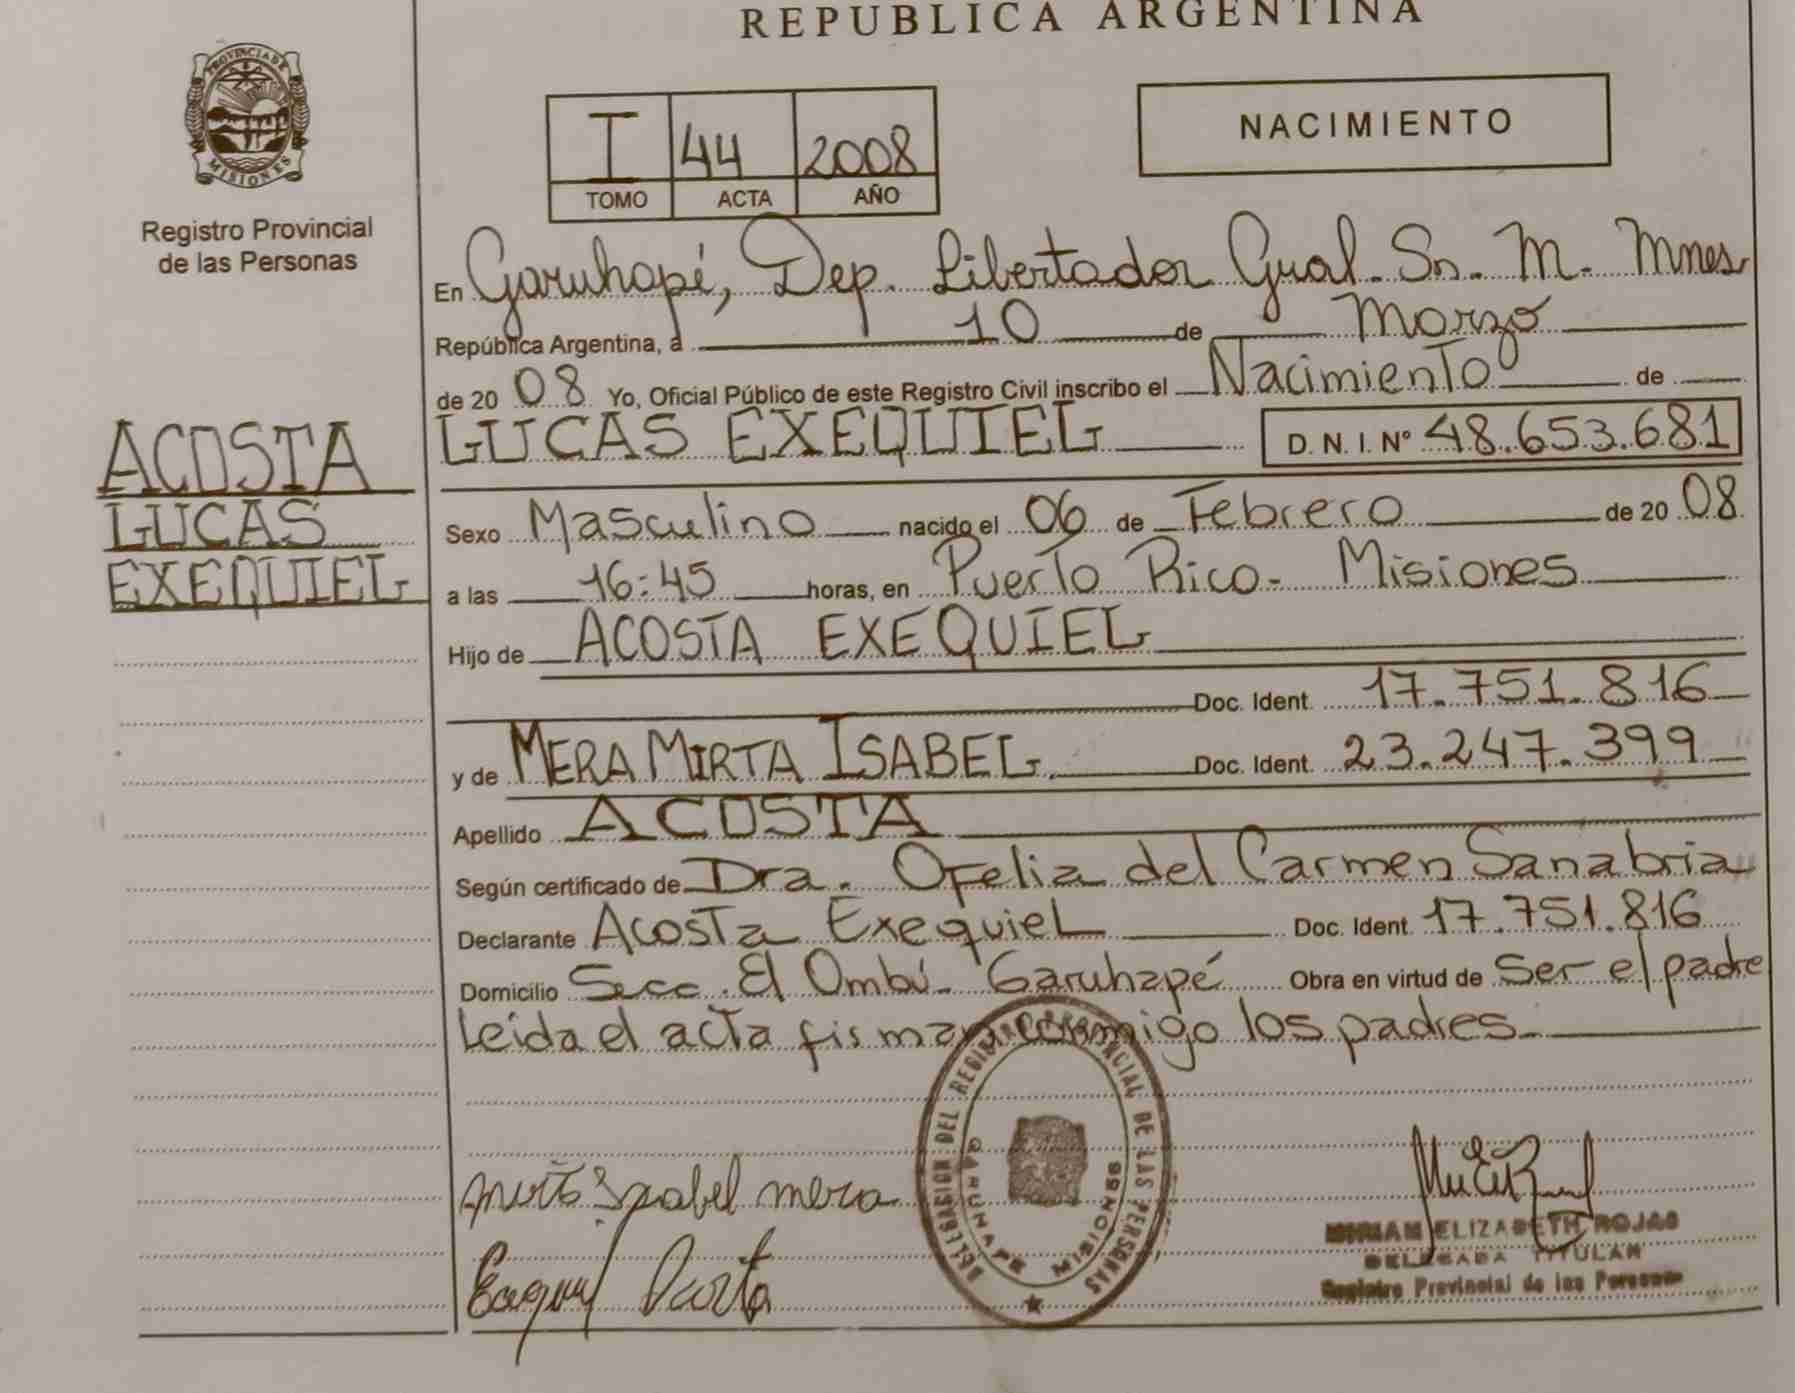 REPUBLICA ARGENTINA
PROVINCIA DE MISIONES
Registro Provincial
de las Personas
I 44 2008
TOMO ACTA AÑO
NACIMIENTO
En Garuhapé, Dep. Libertador Gral. Sn. M. Mnes
República Argentina, a 10 de Marzo
de 20 08 Yo, Oficial Público de este Registro Civil inscribo el Nacimiento de
ACOSTA
LUCAS
EXEQUIEL
LUCAS EXEQUIEL D. N. I. N° 48.653.681
Sexo Masculino nacido el 06 de Febrero de 20 08
a las 16:45 horas, en Puerto Rico - Misiones
Hijo de ACOSTA EXEQUIEL
Doc. Ident. 17.751.816
y de MERA MIRTA ISABEL Doc. Ident. 23.247.399
Apellido ACOSTA
Según certificado de Dra. Ofelia del Carmen Sanabria
Declarante Acosta Exequiel Doc. Ident. 17.751.816
Domicilio Secc. El Ombú - Garuhapé Obra en virtud de Ser el padre
Leida el acta firman conmigo los padres
DELEGACION DEL REGISTRO PROVINCIAL DE LAS PERSONAS
GARUHAPE MISIONES
Mirta Isabel mera
Exequiel Acosta
MIRIAM ELIZABETH ROJAS
DELEGADA TITULAR
Registro Provincial de las Personas